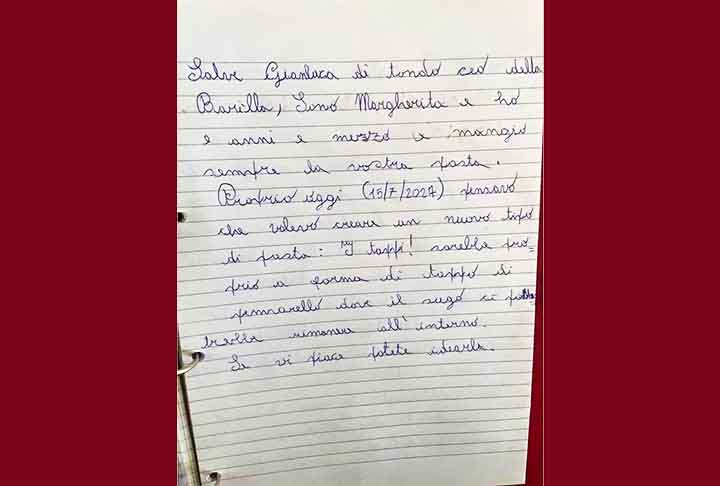 Salve Gianluca di tondo ceo della
Barilla, Sono Margherita e ho
e anni e mezzo e mangio
sempre la vostra pasta.
Proprio oggi (15/7/2024) pensavo
che volevo creare un nuovo tipo
di pasta: "I tappi! sarebbe pro-
prio a forma di tappo di
pennarello dove il sugo ci potreb
trebbe rimanere all'interno.
Se vi piace potete idearla.